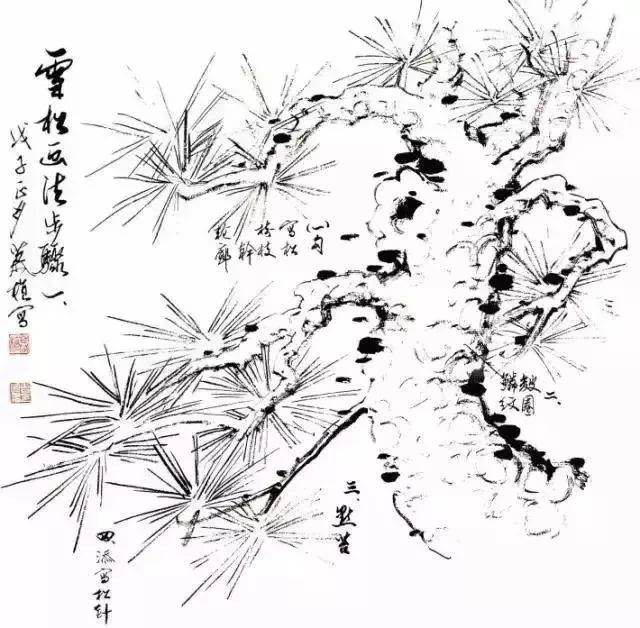 雪松画法步驟一、
戊子正月 写
(一)勾
写松
树枝
幹
轮廓
二、
皴圆
鳞纹
三、點苔
四、添写松针